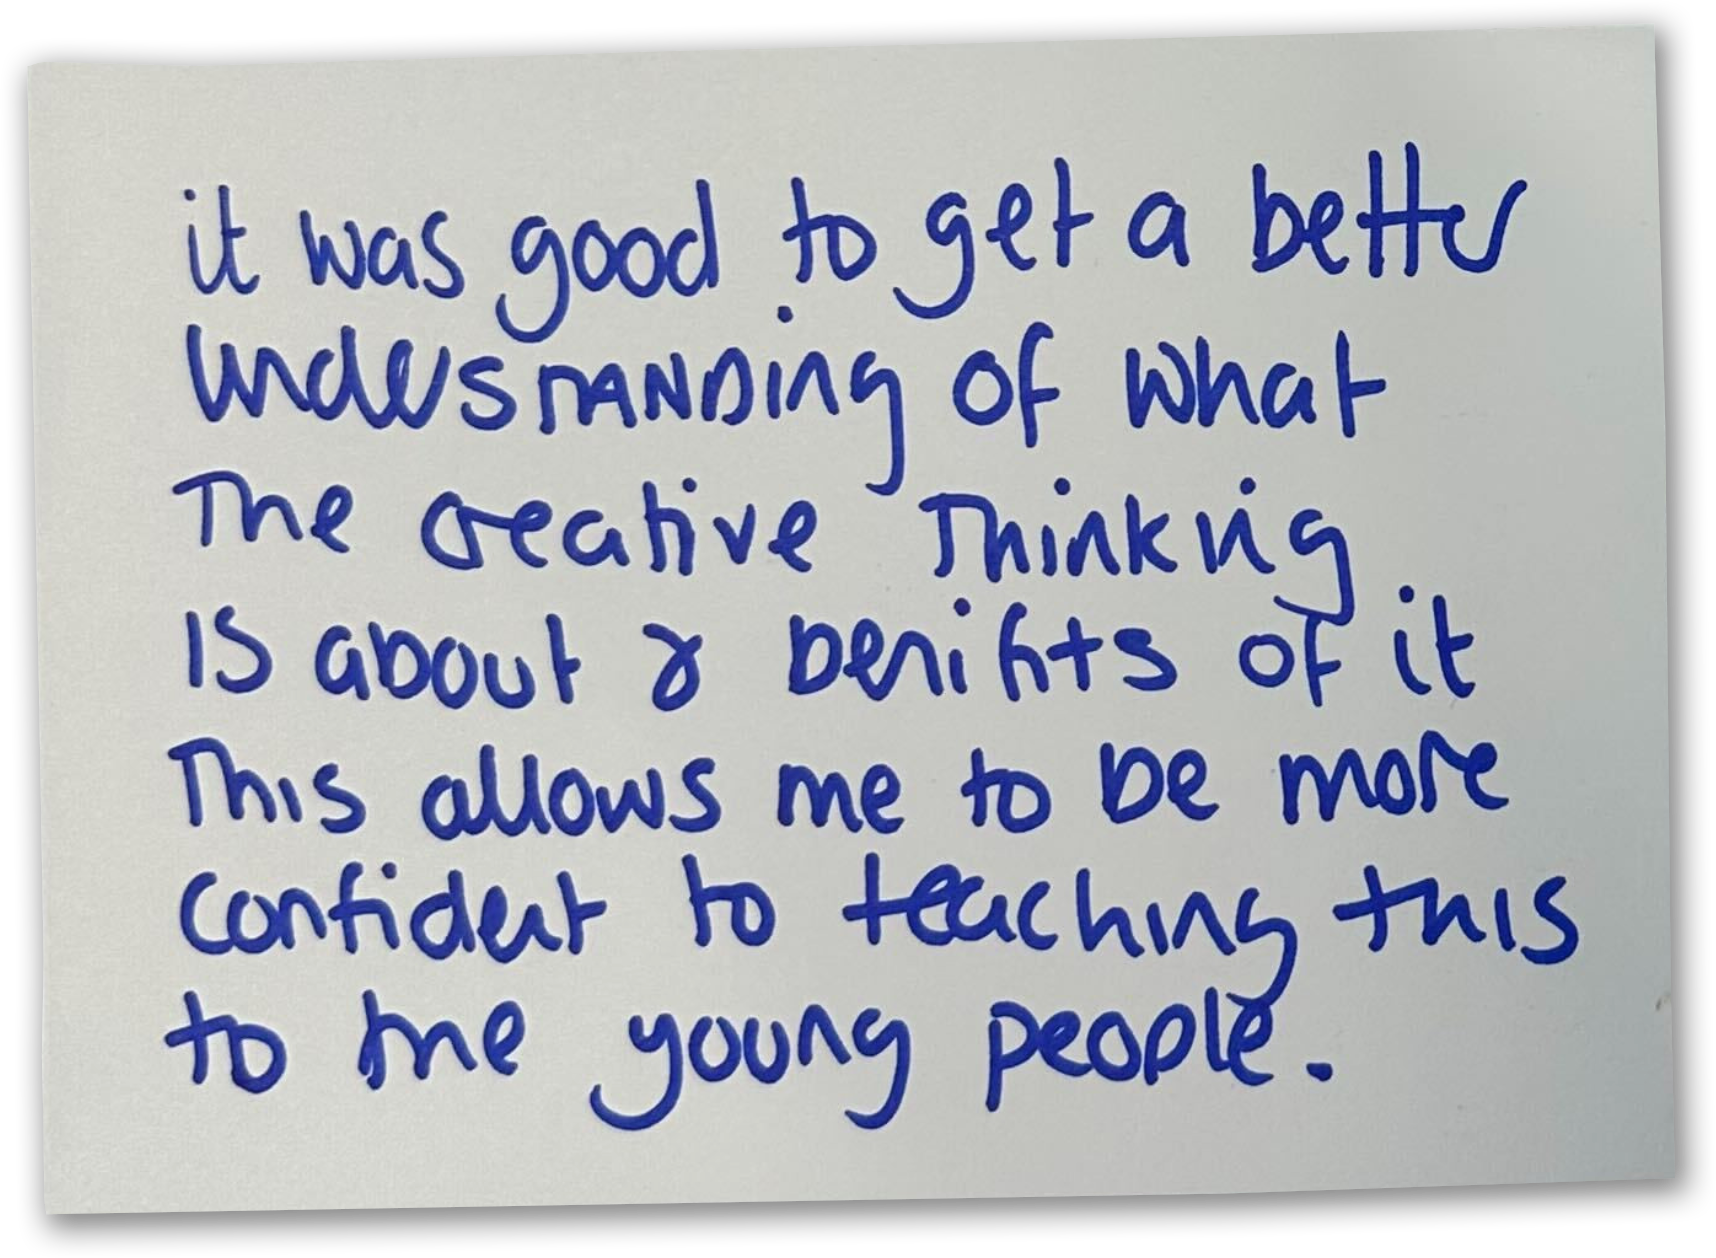 it was good to get a better
understanding of what
The creative Thinking
is about & benifits of it
This allows me to be more
confident to teaching this
to the young people.